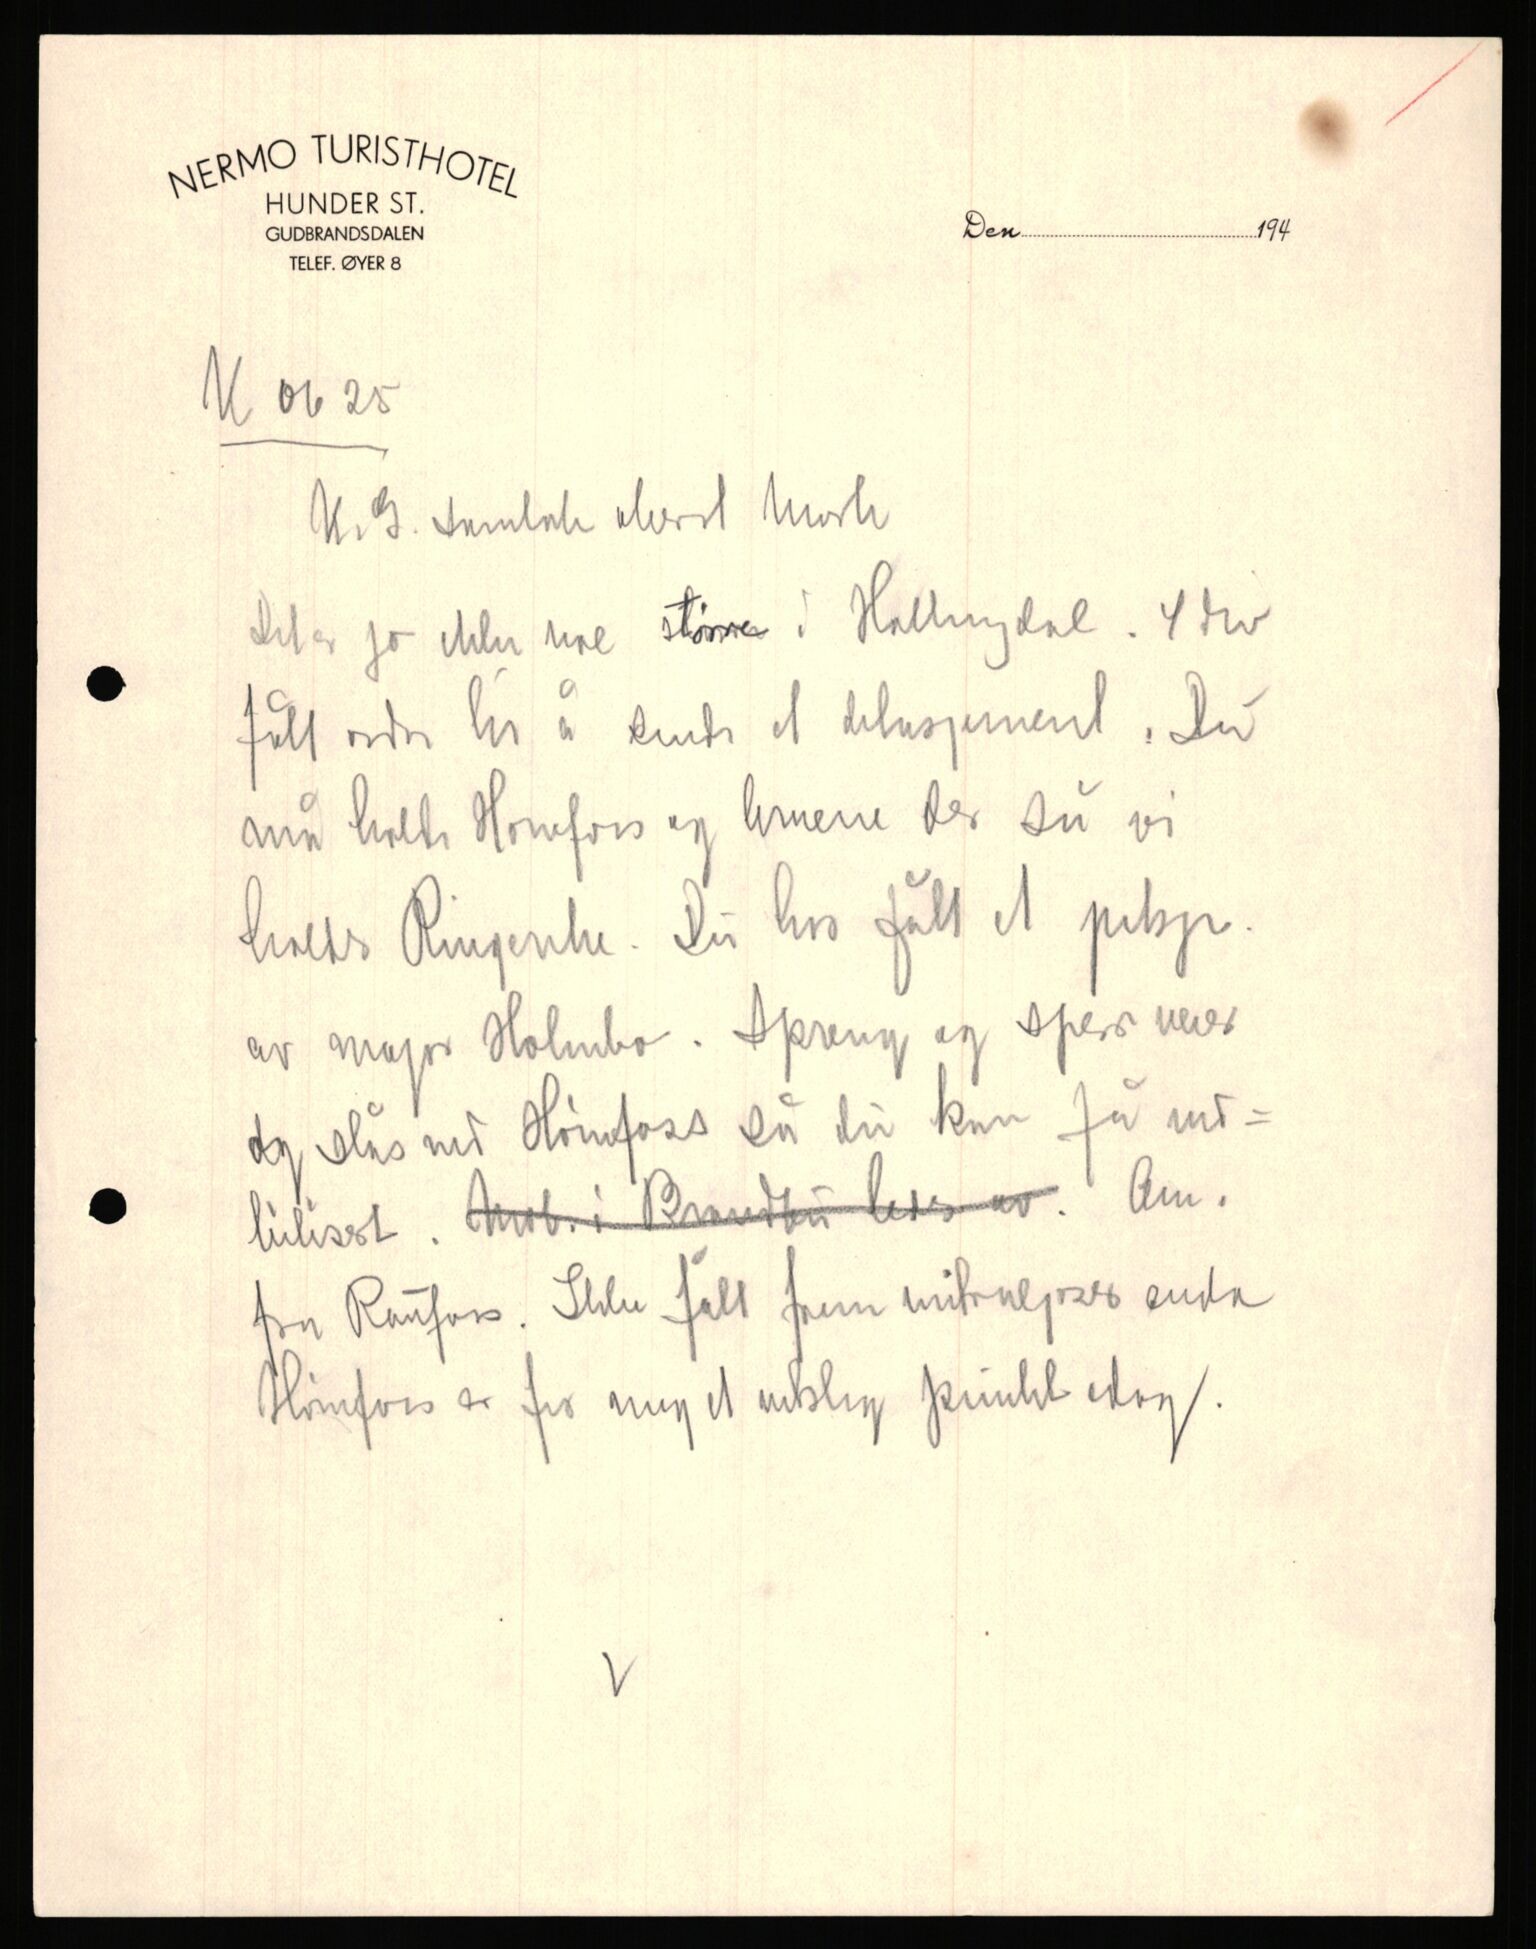 NERMO TURISTHOTEL
HUNDER ST.
GUDBRANDSDALEN
TELEF. ØYER 8
Den 194
Kl 0625
K.G. samtale oberst Mork
Det er jo ikke noe større i Hallingdal. 4 div
fått ordre til å sende et detasjement. Du
må holde Hønefoss og bruene der så vi
holder Ringerike. Du har fått et petsje.
av major Holmbo. Spreng og sperr veier
og slås ved Hønefoss så du kan få mo=
bilisert. Mob. i Brandbu ledes av. Am.
fra Raufoss. Ikke fått frem mitraljøser enda
Hønefoss er for meg et viktig punkt idag/.
V